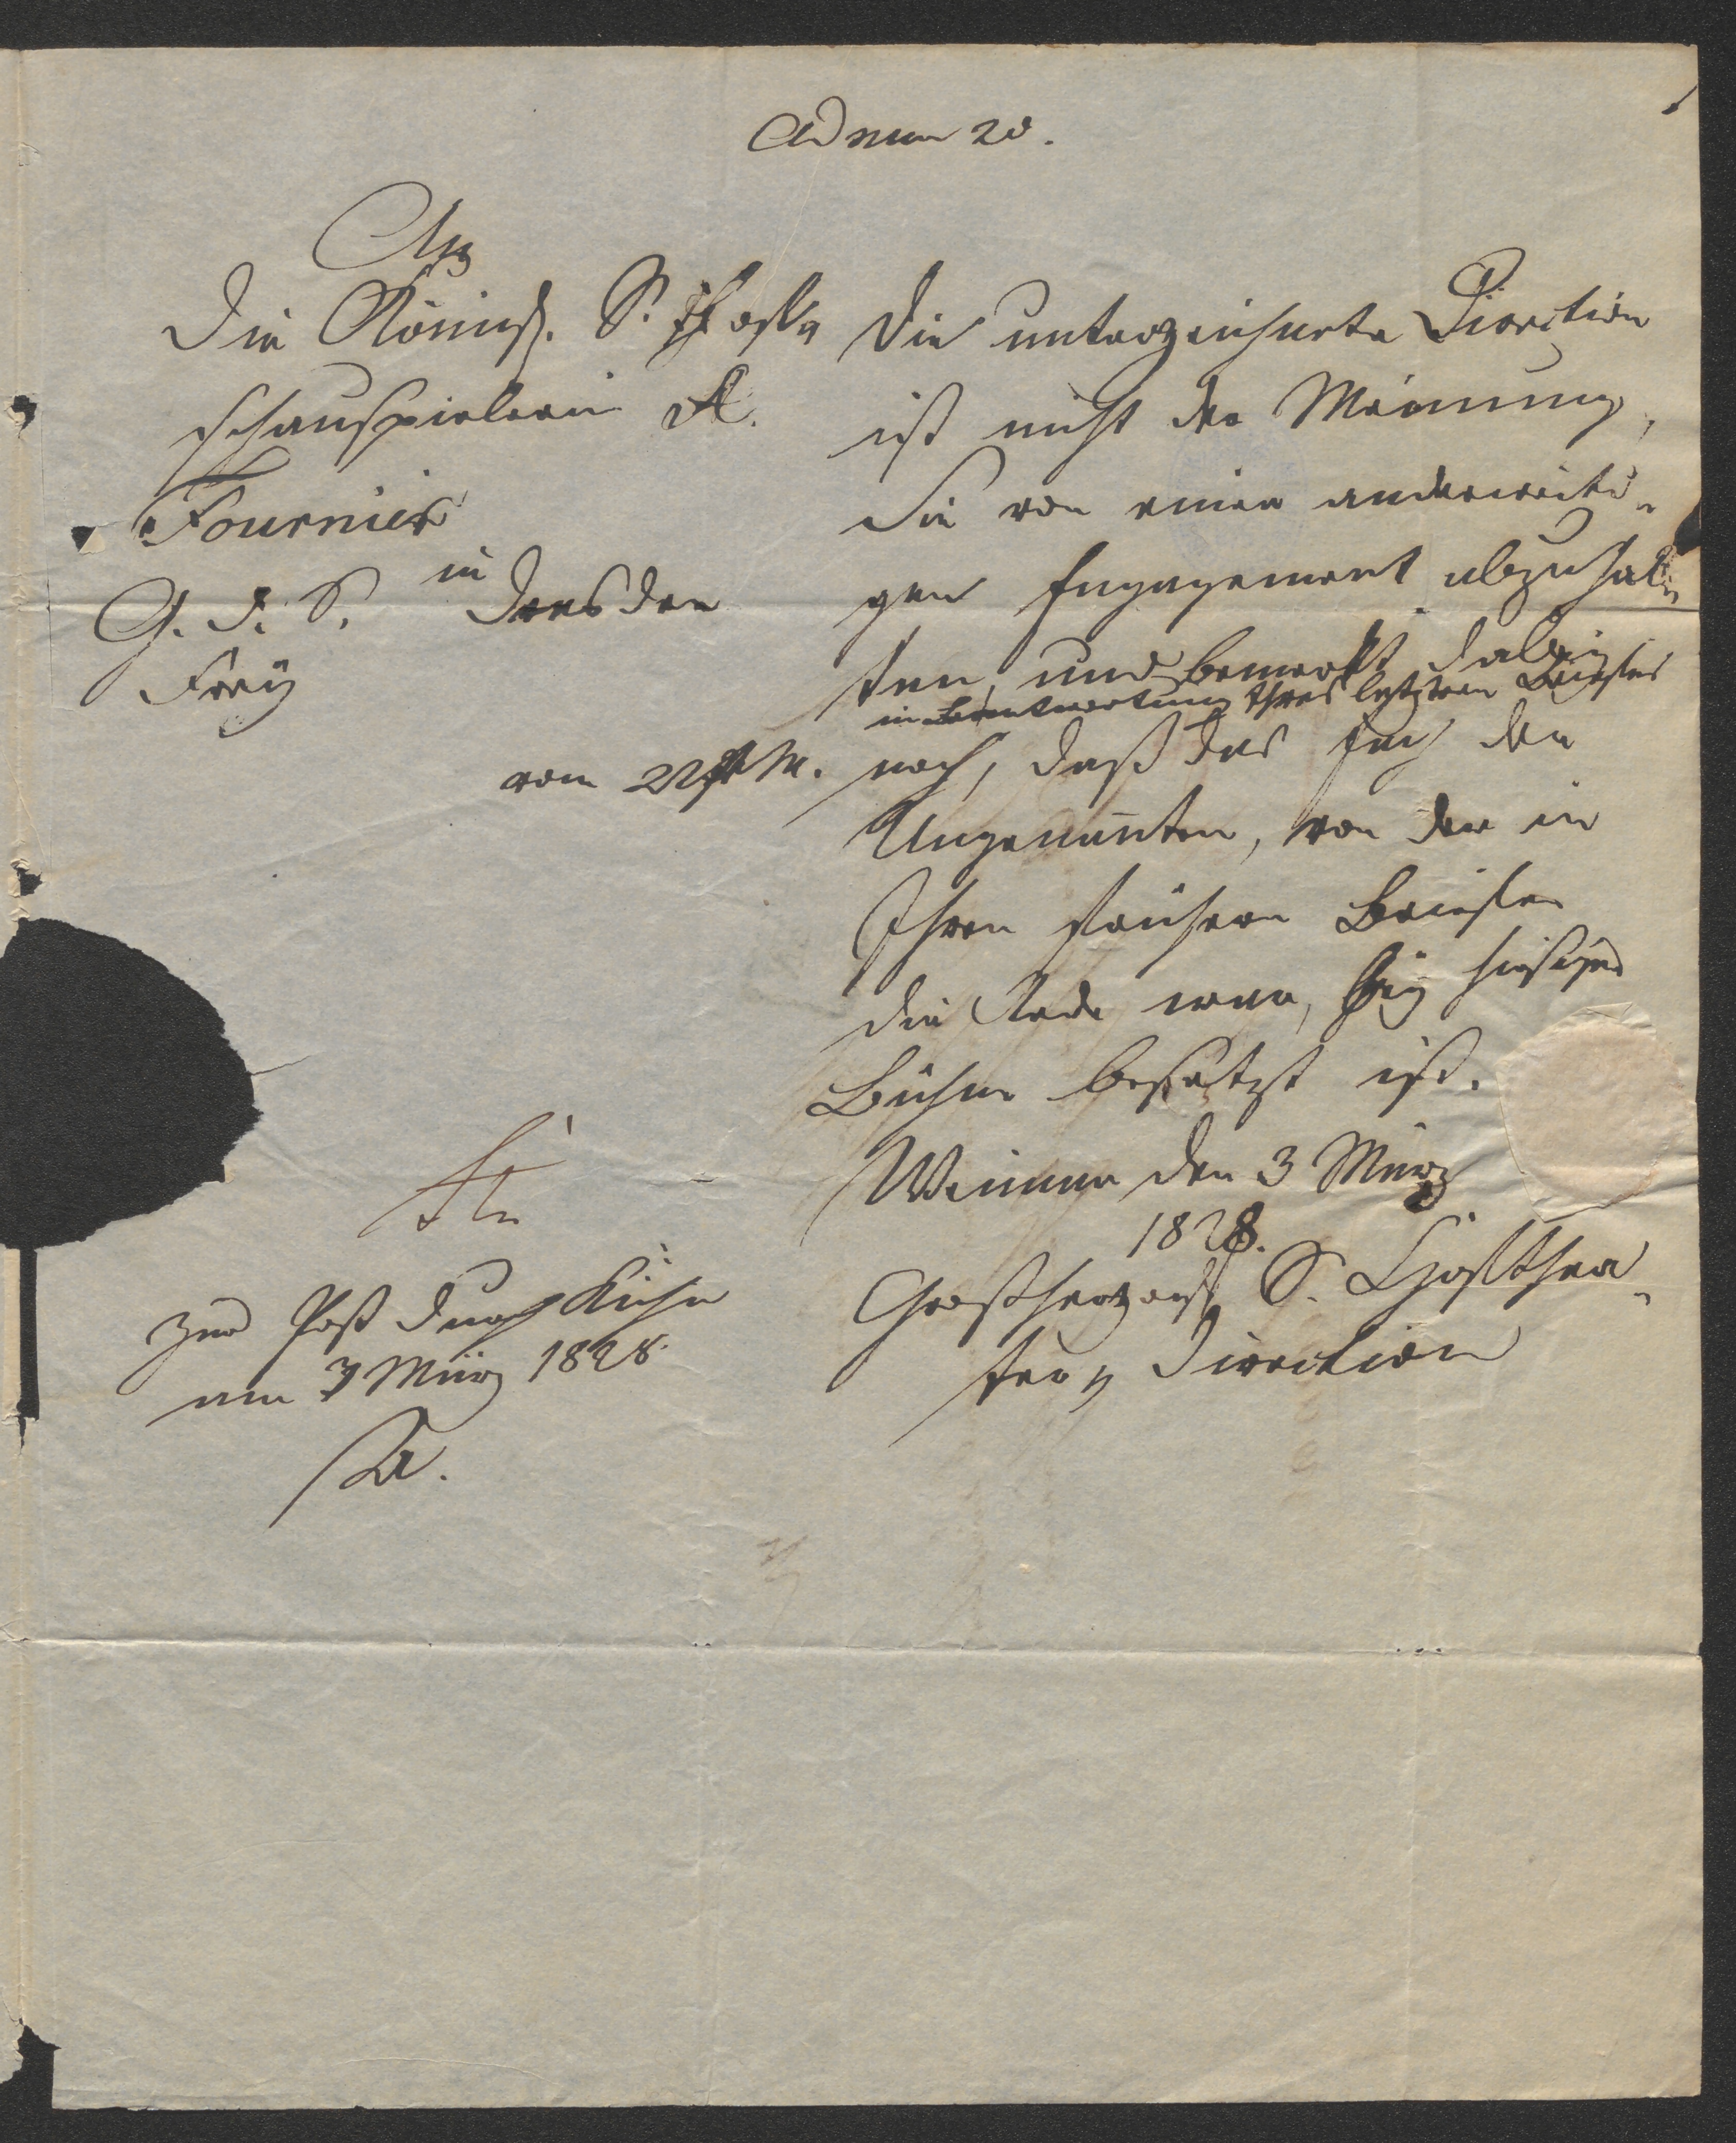 Ad num 20.
An
die Königl. S. Hof-
schauspielerin A.
Fournier
in
G. d. S. Dresden
Frey
die unterzeichnete Direction
ist nicht der Meinung,
Sie von einem anderweiti-
gen Engagement abzuhal-
ten, und bemerkt dabey
in Beantwortung Ihres letztern Briefes
vom 22 M. noch, daß das Fach der
Ungenannten, von der in
Ihren frühern Briefen
die Rede war, bey hiesiger
Bühne besetzt ist.
Weimar den 3 März
1828.
Großherzogl. S. Hofthea-
ter Direction
zur Post durch Kühn
am 3 März 1828.